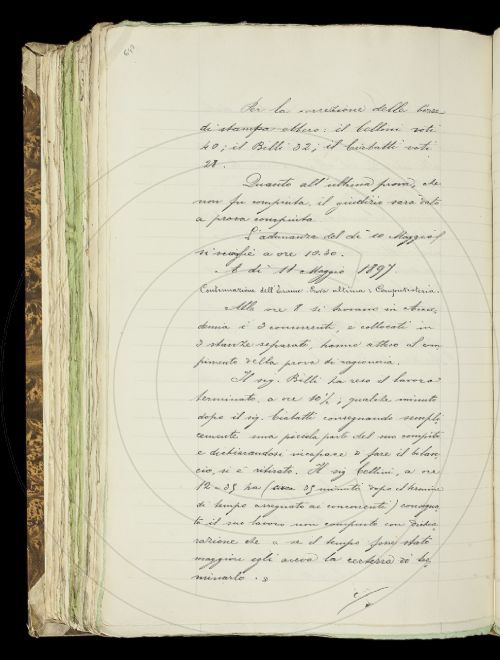 60
Per la correzione delle bozze
di stampa ebbero: il Cellini voti
40; il Belli 32; il Ciabatti voti
28.
Quanto all'ultima prova, che
non fu compiuta, il giudizio sarà dato
a prova compiuta.
L'adunanza del dì 10 Maggio
si sciolse a ore 10.30.
A dì 11 Maggio 1897.
Continuazione dell'Esame. Prova ultima: Computisteria.
Alla ore 8 si trovano in Acca-
demia i 3 concorrenti, e collocati in
3 stanze separate, hanno atteso al com-
pimento della prova di ragioneria.
Il sig. Belli ha reso il lavoro
terminato a ore 10½; qualche minuto
dopo il sig. Ciabatti consegnando sempli-
cemente una piccola parte del suo compito
e dichiarandosi incapace di fare il bilan-
cio, si è ritirato. Il sig. Cellini, a ore
12 e 35 ha (circa 35 minuti dopo il termine
di tempo assegnato ai concorrenti) consegna-
to il suo lavoro non compiuto con dichia-
razione che se il tempo fosse stato
maggiore egli aveva la certezza di ter-
minarlo.